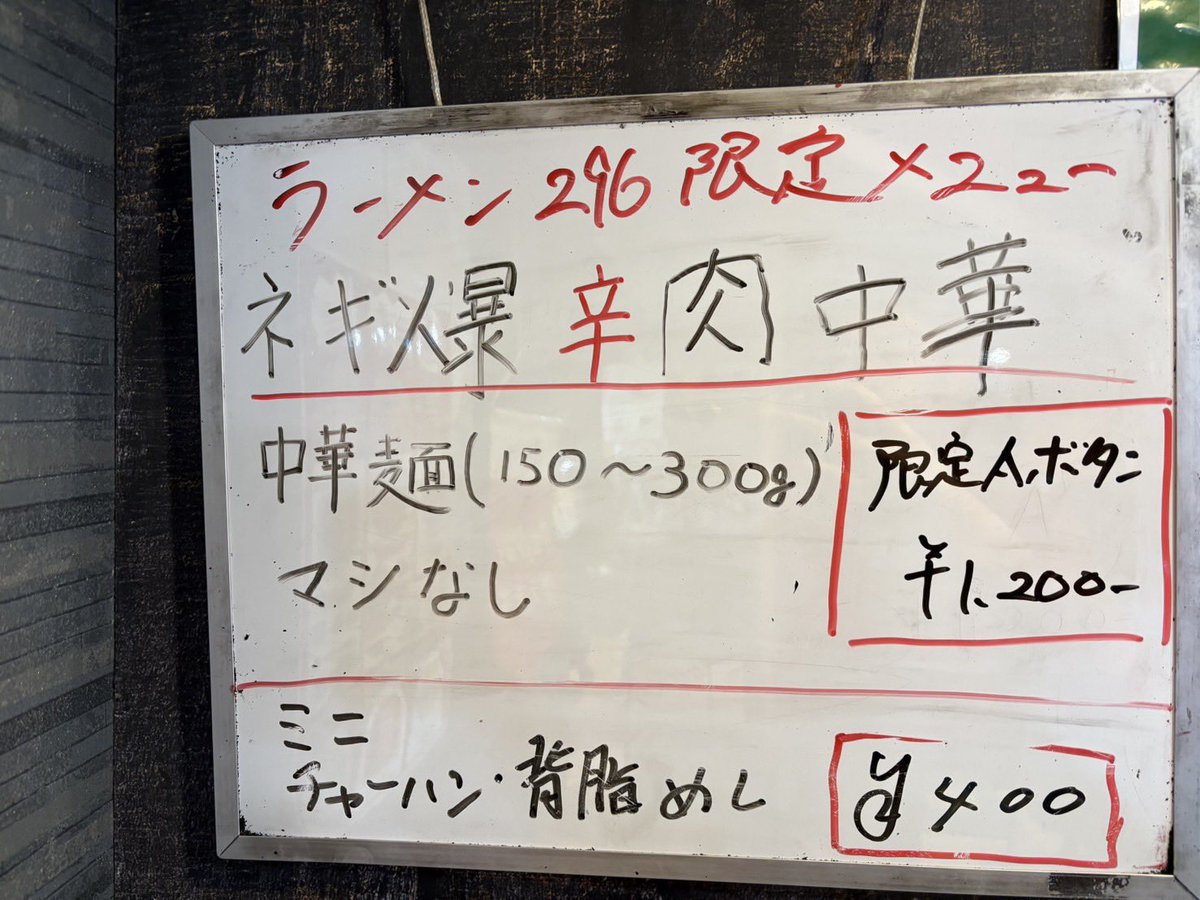 ラーメン296限定メニュー
ネギ爆辛肉中華
中華麺(150〜300g)
マシなし
限定Aボタン
¥1,200-
ミニ
チャーハン・背脂めし
¥400